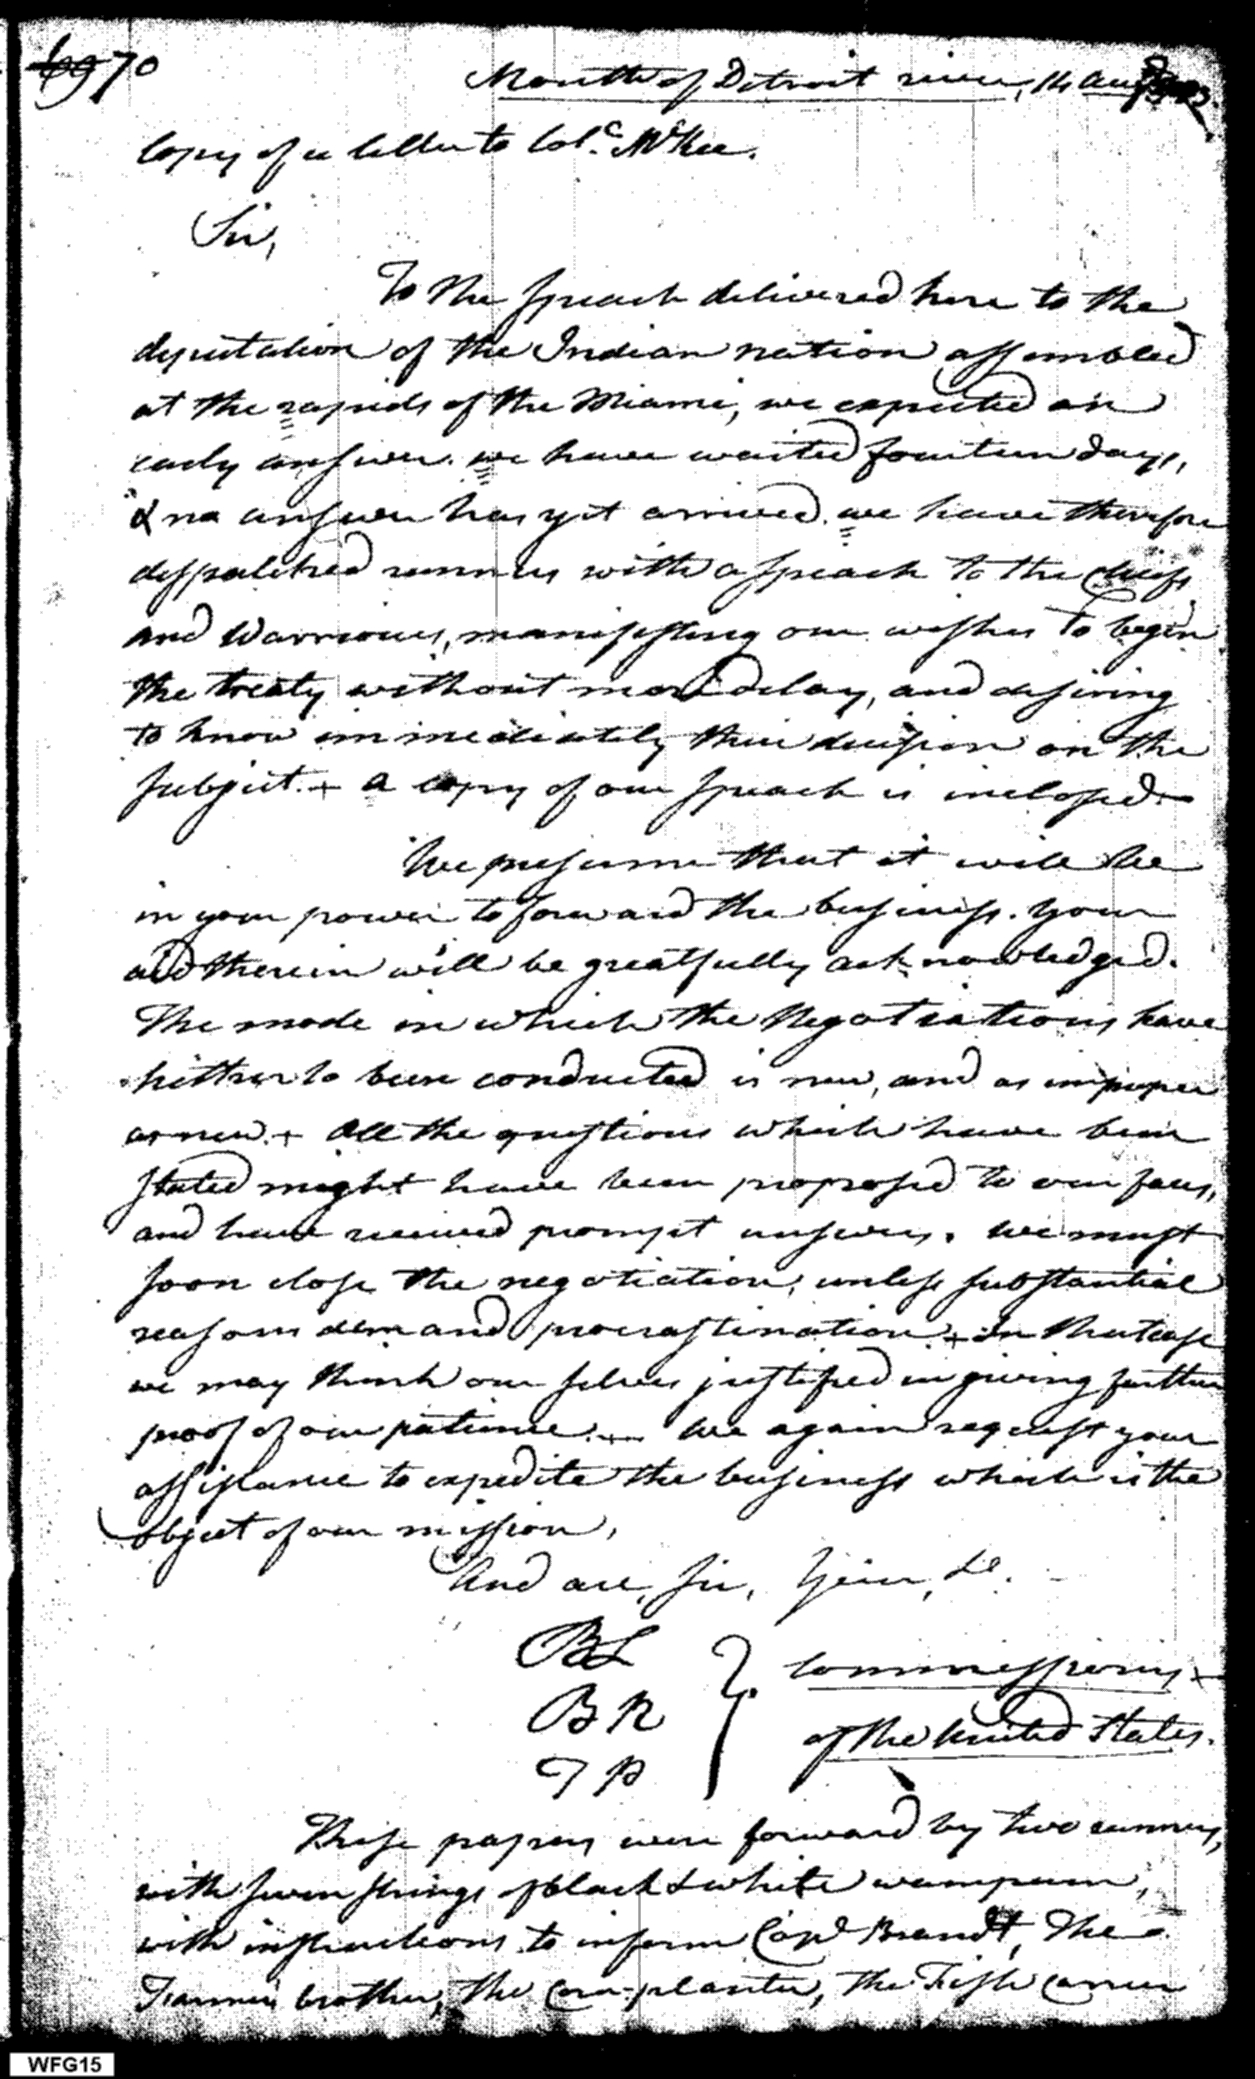 69 70
Mouth of Detroit river, 14 Aug
Copy of a letter to Colo. McKee.
Sir,
To the speach delivered here to the
deputation of the Indian nation assembled
at the rapids of the Miami, we expected an
early answer. we have waited fourteen days,
& no answer has yet arrived. we have therefore
despatched runners with a speach to the chiefs
and Warriours, manifesting our wishes to begin
the treaty without more delay, and desiring
to know immediately their decision on the
subject. + a copy of our speach is inclosed. –
We presume that it will be
in your power to forward the business. your
aid therein will be greatfully acknowledged.
The mode in which the Negotiations have
hitherto been conducted is new, and as improper
as new. + All the questions which have been
stated might have been proposed to our faces,
and have received prompt answers. We must
soon close the negotiation, unless substantial
reasons demand procrastination. + In that case
we may think our selves justified in giving further
proof of our patience. — We again request your
assistance to expedite the business which is the
object of our mission,
And are, Sir, Your, &c.
BL
BR
TP
Commissioners
of the United States.
These papers were forward by two runners,
with seven strings of black & white wampum,
with instructions to inform Capt. Brandt, The
Farmers brother, the Corn-planter, the Fish carrier
WFG15